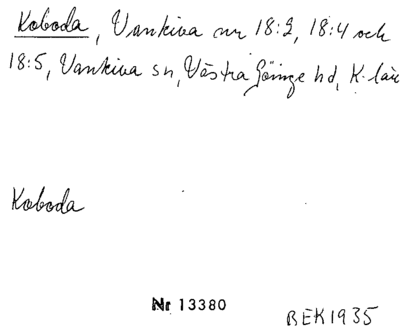 Koboda, Vankiva nr 18:2, 18:4 och
18:5, Vankiva sn, Västra Göinge hd, K. län
Koboda
Nr 13380
BEK1935